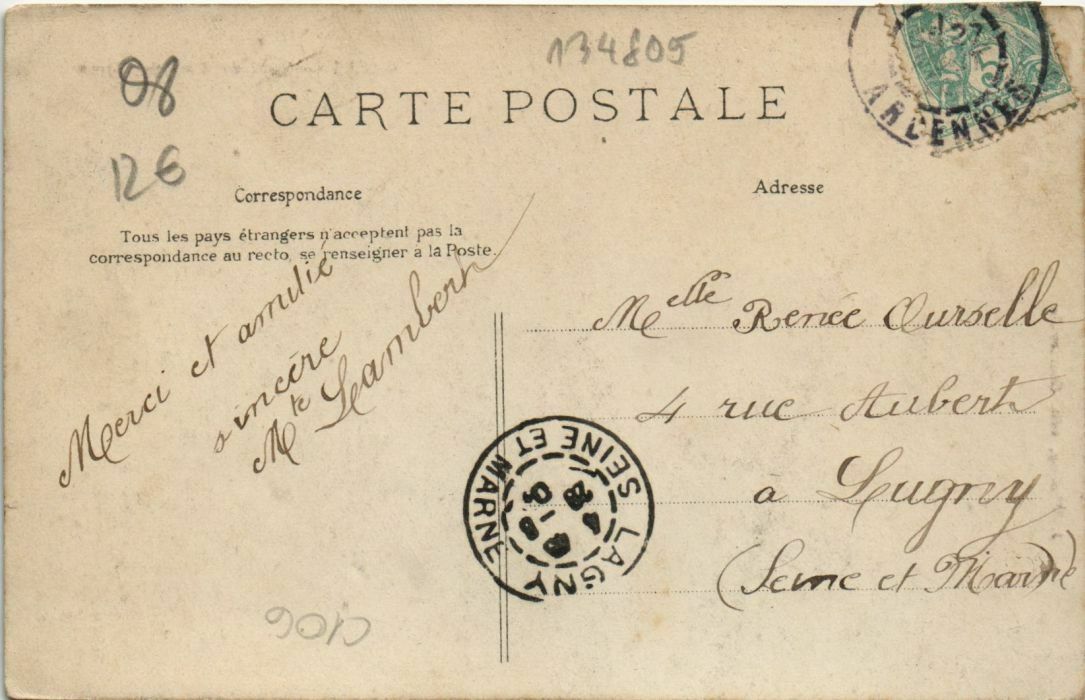 134805
08
CARTE POSTALE
12€
ARDENNES
Correspondance
Adresse
Tous les pays étrangers n'acceptent pas la
correspondance au recto, se renseigner à la Poste.
Merci et amitié
sincère
Mte Lambert
Melle Renée Ourselle
4 rue Aubert
à Lagny
(Seine et Marne)
LAGNY
SEINE ET MARNE
C106